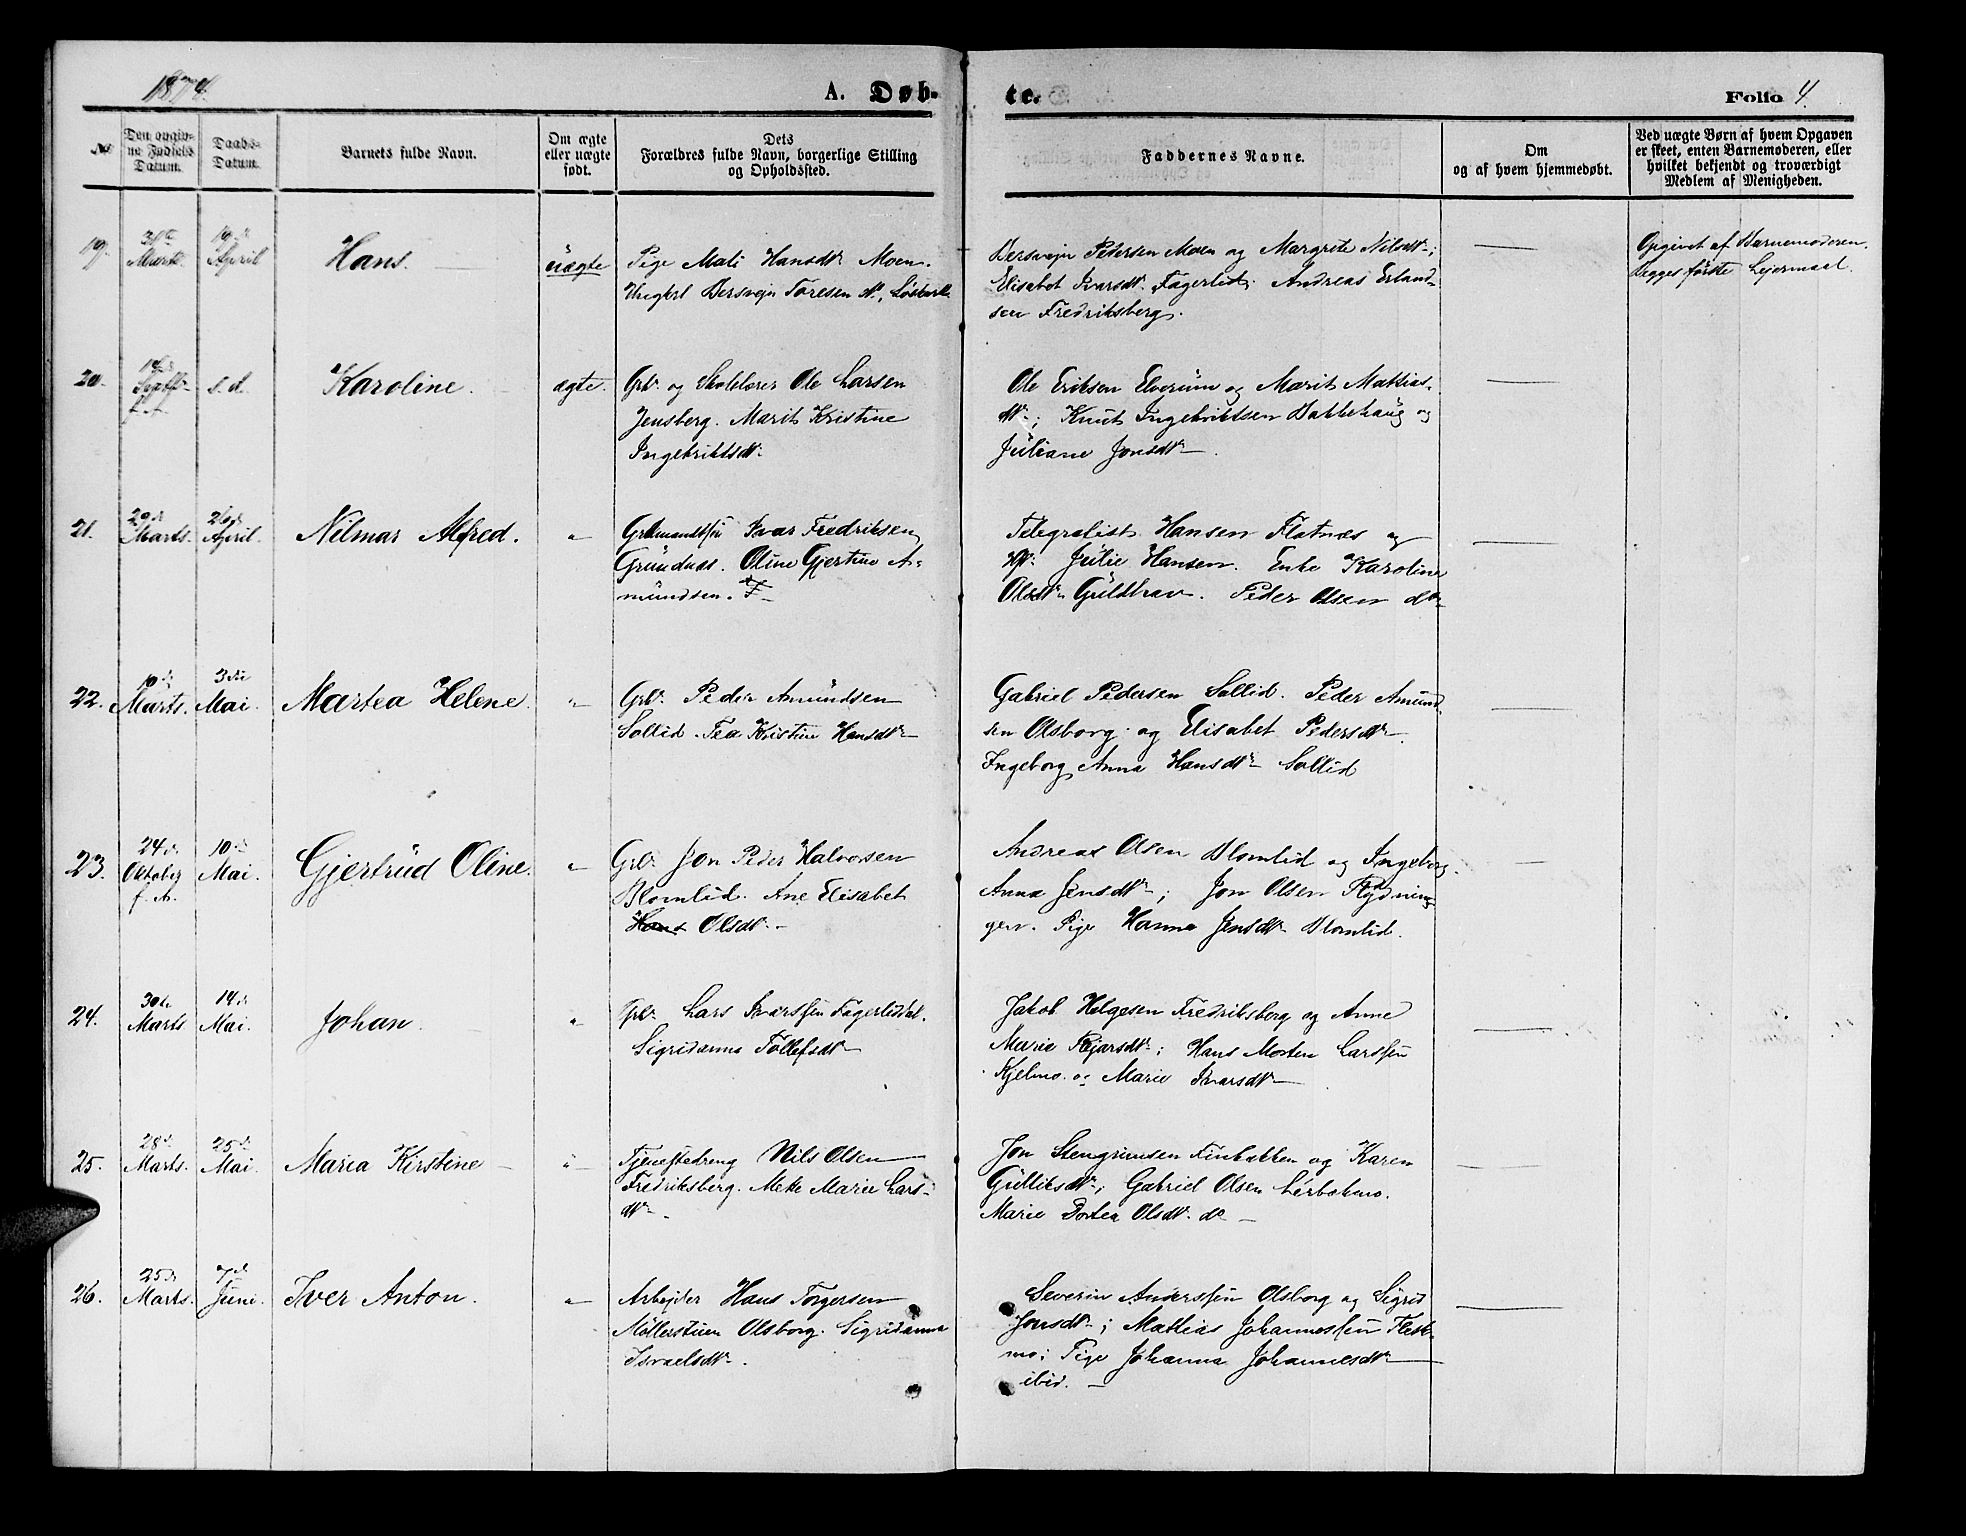 1874.
A. Døb-
te.
Folio 4.
No
Den opgiv-
ne Fødsels
Datum.
Daabs-
Datum.
Barnets fulde Navn.
Om ægte
eller uægte
født.
Dets
Forældres fulde Navn, borgerlige Stilling
og Opholdssted.
Faddernes Navne.
Om
og af hvem hjemmedøbt.
Ved uægte Børn af hvem Opgaven
er skeet, enten Barnemoderen, eller
hvilket bekjendt og troværdigt
Medlem af Menigheden.
19.
Marts.
April
Hans.
uægte
Pige Mali Hansdtr Moen.
Ungkrl Bersvejn Toresen
Bersvejn Petersen Moen og Margrete Nilsdtr;
Elisabet Ivarsdtr Fagerlid; Andreas Erland-
sen Fredriksberg.
Opgivet af Barnemoderen.
Begges første Lejermaal.
20.
f. A.
s. d.
Karoline.
ægte.
Grbr og Skolelærer Ole Larsen
Jensberg. Marit Kristine
Ingebriktsdtr
Ole Eriksen Elverum og Marit Mathias-
dtr; Knut Ingebriktsen Bakkehaug og
Juliane Jonsdtr.
21.
29de
Marts.
26de
April.
Nilmar Alfred.
"
Ivar Fredriksen
Grundnæs. Oline Gjertine A-
mundsen.
Telegrafist Hansen Flatnæs og
Julie Hansen. Enke Karoline
Olsdtr Guldhav. Peder Olsen do
22.
10de
Marts.
3die
Mai.
Martea Helene.
"
Grbr. Peder Amundsen
Sollid. Tea Kristine Hansdtr
Gabriel Pedersen Sollid. Peder Amund-
sen Olsborg og Elisabet Pedersdtr.
Ingeborg Anna Hansdtr Sollid
23.
24de
Oktober
f. A.
10de
Mai.
Gjertrud Oline.
"
Grbr Jon Peder Halvorsen
Blomlid. Ane Elisabet
Olsdtr.
Andreas Olsen Blomlid og Ingeborg
Anna Jensdtr; Jon Olsen Rydnin-
gen. Pige Hanna Jensdtr Blomlid.
24.
30de
Marts
14de
Mai.
Johan.
"
Grbr Lars Ivarssen Fagerliddal.
Sigridanna Tollefsdtr
Jakob Helgesen Fredriksberg og Anne
Marie Pejarsdtr; Hans Morten Larssen
Kjelmo. og Marie Ivarsdtr
25.
28de
Marts.
25de
Mai.
Maria Kirstine
"
Tjenestedreng Nils Olsen
Fredriksberg. Mete Marie Lars-
dtr.
Jon Stengrimsen Finbakken og Karen
Gulliksdtr; Gabriel Olsen Lerbakmo.
Marie Dortea Olsdtr. do
26.
25de
Marts.
7de
Juni.
Iver Anton.
"
Arbejder Hans Torgersen
Møllerstuen Olsborg. Sigridanna
Israelsdtr.
Severin Anderssen Olsborg og Sigrid
Jonsdtr; Mathias Johannessen Flesk-
mo; Pige Johanna Johannesdtr
ibid.